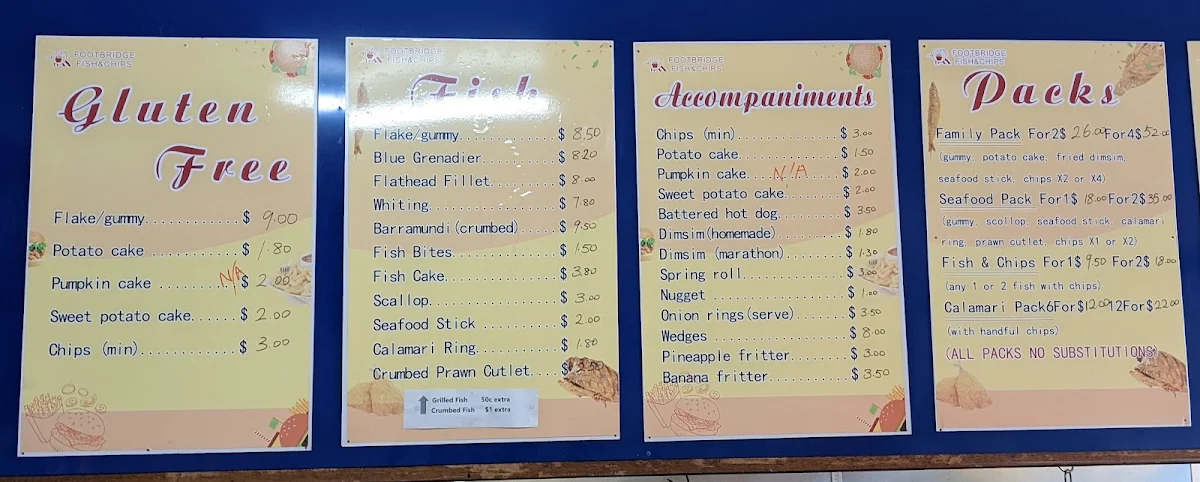 FOOTBRIDGE
FISH&CHIPS
Gluten
Free
Flake/gummy.............$ 9.00
Potato cake .............$ 1.80
Pumpkin cake ........N/A $ 2.00
Sweet potato cake......$ 2.00
Chips (min).............$ 3.00
FOOTBRIDGE
FISH&CHIPS
Fish
Flake/gummy.............$ 8.50
Blue Grenadier..........$ 8.20
Flathead Fillet.........$ 8.00
Whiting.................$ 7.80
Barramundi(crumbed).....$ 9.50
Fish Bites..............$ 1.50
Fish Cake...............$ 3.80
Scallop.................$ 3.00
Seafood Stick ..........$ 2.00
Calamari Ring...........$ 1.80
Crumbed Prawn Cutlet....$ 2.50
Grilled Fish 50c extra
Crumbed Fish $1 extra
FOOTBRIDGE
FISH&CHIPS
Accompaniments
Chips (min).............$ 3.00
Potato cake.............$ 1.50
Pumpkin cake....N/A.....$ 2.00
Sweet potato cake.......$ 2.00
Battered hot dog........$ 3.50
Dimsim(homemade)........$ 1.80
Dimsim (marathon).......$ 1.30
Spring roll.............$ 3.00
Nugget .................$ 1.00
Onion rings(serve)......$ 3.50
Wedges .................$ 8.00
Pineapple fritter.......$ 3.00
Banana fritter..........$ 3.50
FOOTBRIDGE
FISH&CHIPS
Packs
Family Pack For2$ 26.00 For4$ 52.00
(gummy, potato cake, fried dimsim,
seafood stick, chips X2 or X4)
Seafood Pack For1$ 18.00 For2$ 35.00
(gummy, scollop, seafood stick, calamari
ring, prawn cutlet, chips X1 or X2)
Fish & Chips For1$ 9.50 For2$ 18.00
(any 1 or 2 fish with chips)
Calamari Pack6For$ 12.00 12For$ 22.00
(with handful chips)
(ALL PACKS NO SUBSTITUTIONS)